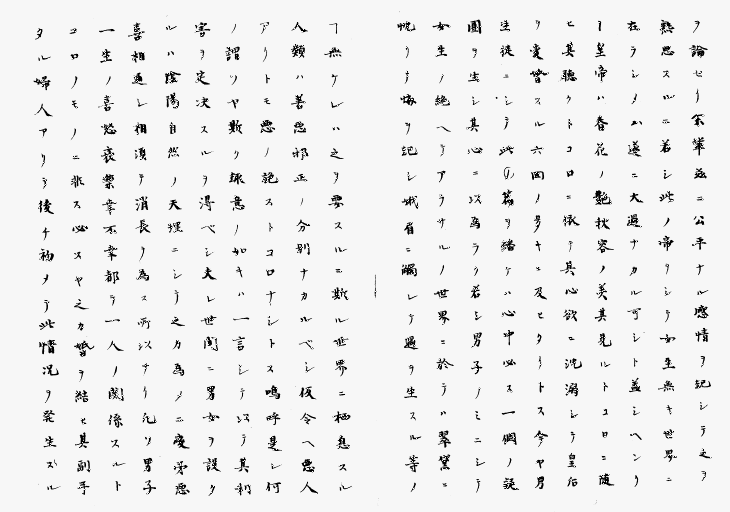 ヲ論セリ余輩茲ニ公平ナル感情ヲ記シテ之ヲ
熟思スルニ若シ此ノ帝ヲシテ女生無キ世界ニ
在ラシメハ遂ニ大過ナカル可シト蓋シヘンリ
ー皇帝ハ春花ノ艶秋容ノ美其見ルトコロニ随
ヒ其聴クトコロニ依テ其心欲ニ沈溺シテ皇后
ヲ変替スル六回ノ多キニ及ヒタリトス今ヤ男
生徒ニシテ此ノ篇ヲ緒ケハ心中必ス一個ノ疑
團ヲ生シ其心ニ以為ラク若シ男子ノミニシテ
女生ノ絶ヘテアラサルノ世界ニ於テハ翠黛ニ
リテ悔ヲ記シ蛾眉ニ觸レテ過ヲ生スル等ノ
ヿ無ケレハ之ヲ要スルニ斯ル世界ニ栖息スル
人類ハ善悪邪正ノ分別ナカルベシ仮令ヘ悪人
アリトモ悪ノ施ストコロナシトス嗚呼是レ何
ノ謂ソヤ斯ク意ノ如キハ一言シテ以テ其利
害ヲ定決スルヲ得ベシ夫レ世間ニ男女ヲ設ク
ルハ陰陽自然ノ天理ニシテ之カ為メニ悪
喜相レ相須テ消長ヲ為ス所以ナリ凡ソ男子
一生ノ喜怒哀樂幸不幸都テ一人ノ関係スルト
コロノモノニ非ス必スヤ之カ婚ヲ結ヒ其副手
タル婦人アリテ後チ初メテ此情況ヲ発生スル